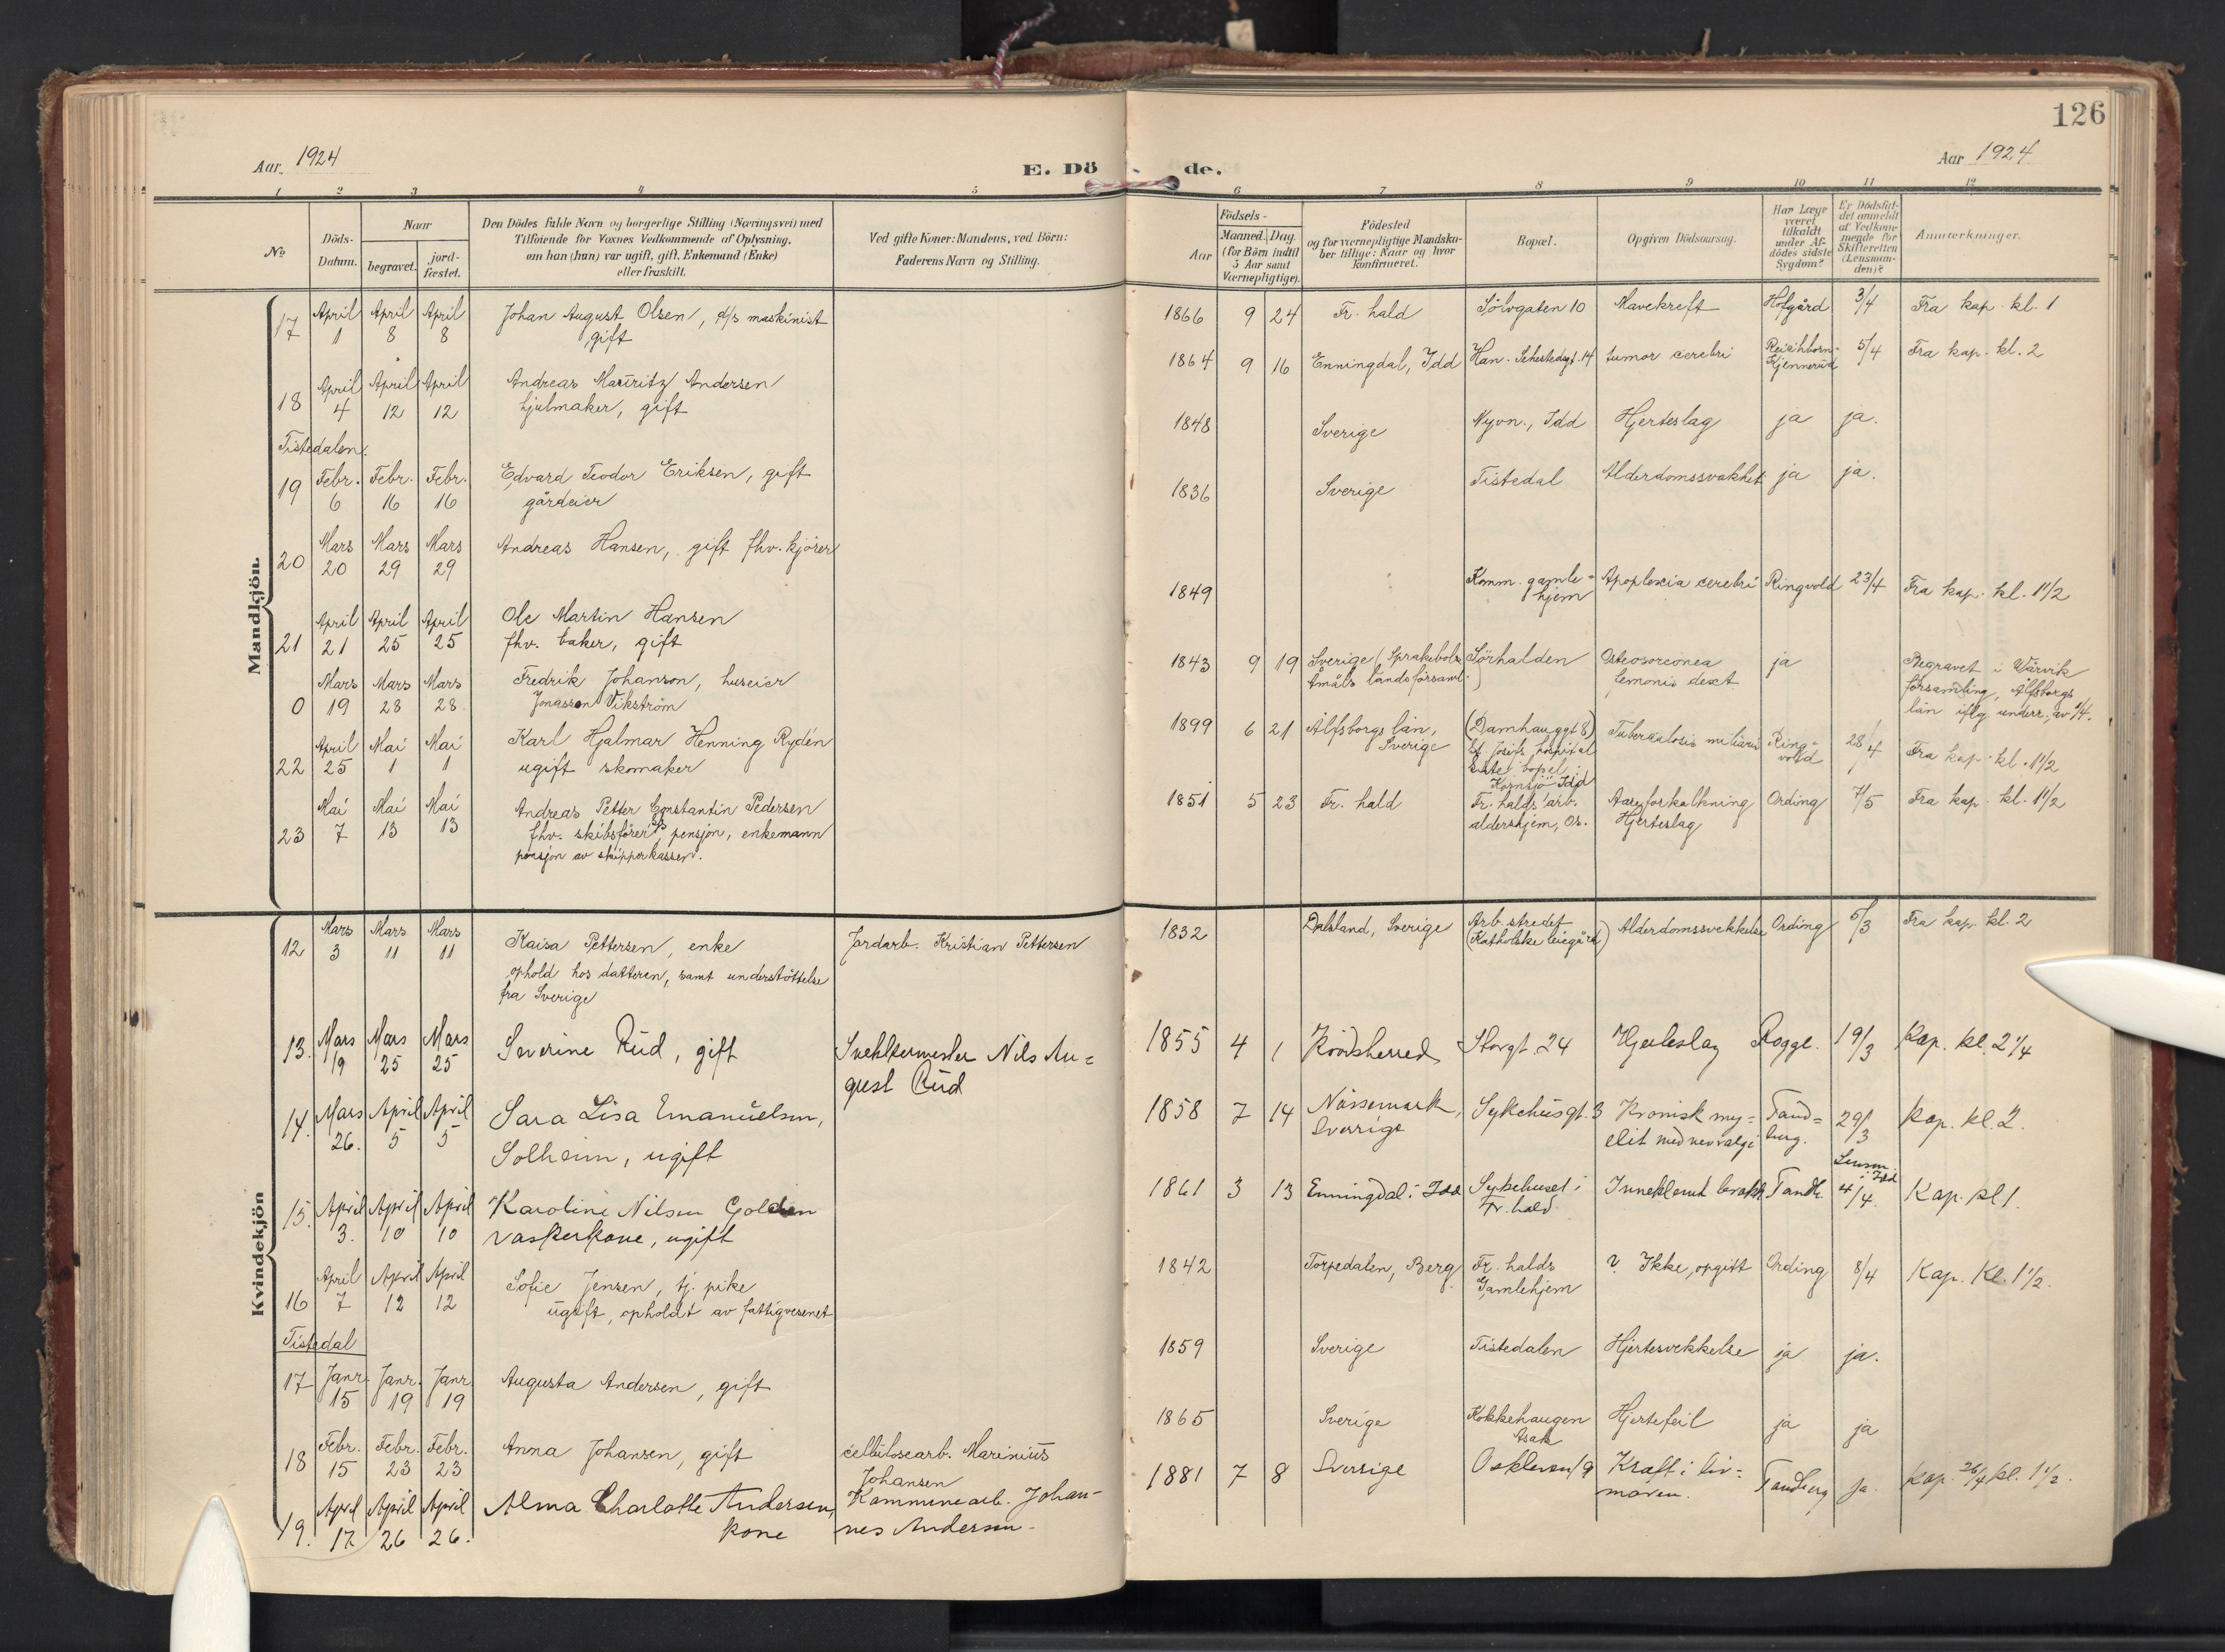 126
Aar 1924
E. Dö de.
Aar 1924
1 2 3 4 5 6 7 8 9 10 11 12
No
Döds-
Datum.
Naar
begravet.
jord-
fæstet.
Den Dödes fulde Navn og borgerlige Stilling (Næringsvei) med
Tilföiende for Voxnes Vedkommende af Oplysning,
om han (hun) var ugift, gift, Enkemand (Enke)
eller fraskilt.
Ved gifte Koner: Mandens, ved Börn:
Faderens Navn og Stilling.
Födsels-
Aar
Maaned. Dag.
(for Börn indtil
5 Aar samt
Værnepligtige).
Födested
og for værnepligtige Mandska-
ber tillige: Naar og hvor
konfirmeret.
Bopæl.
Opgiven Dödsaarsag.
Har Læge
været
tilkaldt
under Af-
dödes sidste
Sygdom?
Er Dödsfal-
det anmeldt
af Vedkom-
mende for
Skifteretten
(Lensman-
den)?
Anmærkninger.
Mandkjön.
17 April 1 April 8 April 8 Johan August Olsen, d/s maskinist
gift
1866 9 24 Fr. hald Sölvgaten 10 Mavekreft Hofgård 3/4 Fra kap. kl. 1
18 April 4 April 12 April 12 Andreas Mauritz Andersen
hjulmaker, gift
1864 9 16 Enningdal, Idd Han. Sehestedsgt. 14 tumor cerebri Reichborn-
Kjennerud 5/4 Fra kap. kl. 2
Tistedalen.
19 Febr. 6 Febr. 16 Febr. 16 Edvard Teodor Eriksen, gift
gårdeier
1848 Sverige Nyvn., Idd Hjerteslag ja ja.
20 Mars 20 Mars 29 Mars 29 Andreas Hansen, gift fhv. kjörer
1836 Sverige Tistedal Alderdomssvakhet ja ja.
21 April 21 April 25 April 25 Ole Martin Hansen
fhv. baker, gift
1849 Komm. gamle-
hjem Apoplexia cerebri Ringvold 23/4 Fra kap. kl. 1 1/2
0 Mars 19 Mars 28 Mars 28 Fredrik Johanson, huseier
Jonasson Vikström
1843 9 19 Sverige (Sprakebola
Åmåls landsförsaml.) Sörhalden femoris dext ja Begravet i Wärvik
församling, Älfsborgs
län iflg. underr. av 1/4.
22 April 25 Mai 1 Mai 1 Karl Hjalmar Henning Rydén
ugift skomaker
1899 6 21 Älfsborgs län,
Sverige (Damhauggt 8)
St. Josefs hospital
siste bopel:
Kornsjö Idd Tuberkulosis miliaris Ring-
vold 28/4 Fra kap. kl. 1 1/2
23 Mai 7 Mai 13 Mai 13 Andreas Petter Constantin Pedersen
fhv. skibsförer pensjon, enkemann
pensjon av skipperkassen.
1851 5 23 Fr. hald Fr. halds arb.
aldershjem, Os. Aareforkalkning
Hjerteslag Ording 7/5 Fra kap. kl. 1 1/2
Kvindekjön
12 Mars 3 Mars 11 Mars 11 Kaisa Pettersen, enke
ophold hos datteren, samt understöttelse
fra Sverige
Jordarb. Kristian Pettersen
1832 Dalsland, Sverige Arb. stredet
(Katholske leiegård) Alderdomssvekkelse Ording 5/3 Fra kap. kl. 2
13. Mars 19 Mars 25 Mars 25 Severine Rud, gift
Nils Au=
gust Rud
1855 4 1 Storgt. 24 Hjerteslag Rogge. 19/3 Kap. kl. 2 1/4
14. Mars 26. April 5 April 5 Sara Lisa Emanuelsen,
Solheim, ugift
1858 7 14 Nössemark,
Sverrige Sykehusgt. 3 Kronisk my=
elit med nevralgi Tand=
berg. 29/3 Kap. kl. 2.
15. April 3. April 10 April 10 Karoline Nilsen Golden
vaskerkone, ugift
1861 3 13 Enningdal i Idd Sykehuset i
Fr. hald Inneklemt brokk Tandb. Lensm. i Idd
4/4. Kap. kl 1.
16 April 7 April 12 April 12 Sofie Jensen, tj. pike
ugift, opholdt av fattigvesenet
1842 Torpedalen, Berg. Fr. halds
Gamlehjem ? Ikke opgitt Ording 8/4 Kap. Kl. 1 1/2.
Tistedal
17 Janr. 15 Janr. 19 Janr. 19 Augusta Andersen, gift
1859 Sverige Tistedalen Hjertesvekkelse ja ja.
18 Febr. 15 Febr. 23 Febr. 23 Anna Johansen, gift
cellulosearb. Marinius
Johansen
1865 Sverige Kokkehaugen
Asak Hjertefeil ja ja
19. April 17 April 26 April 26. Alma Charlotte Andersen,
kone
Kommunearb. Johan-
nes Andersen.
1881 7 8 Sverige Oskleven 19 Kræft i liv=
moren. Tandberg ja. Kap. 26/4 kl. 1 1/2.